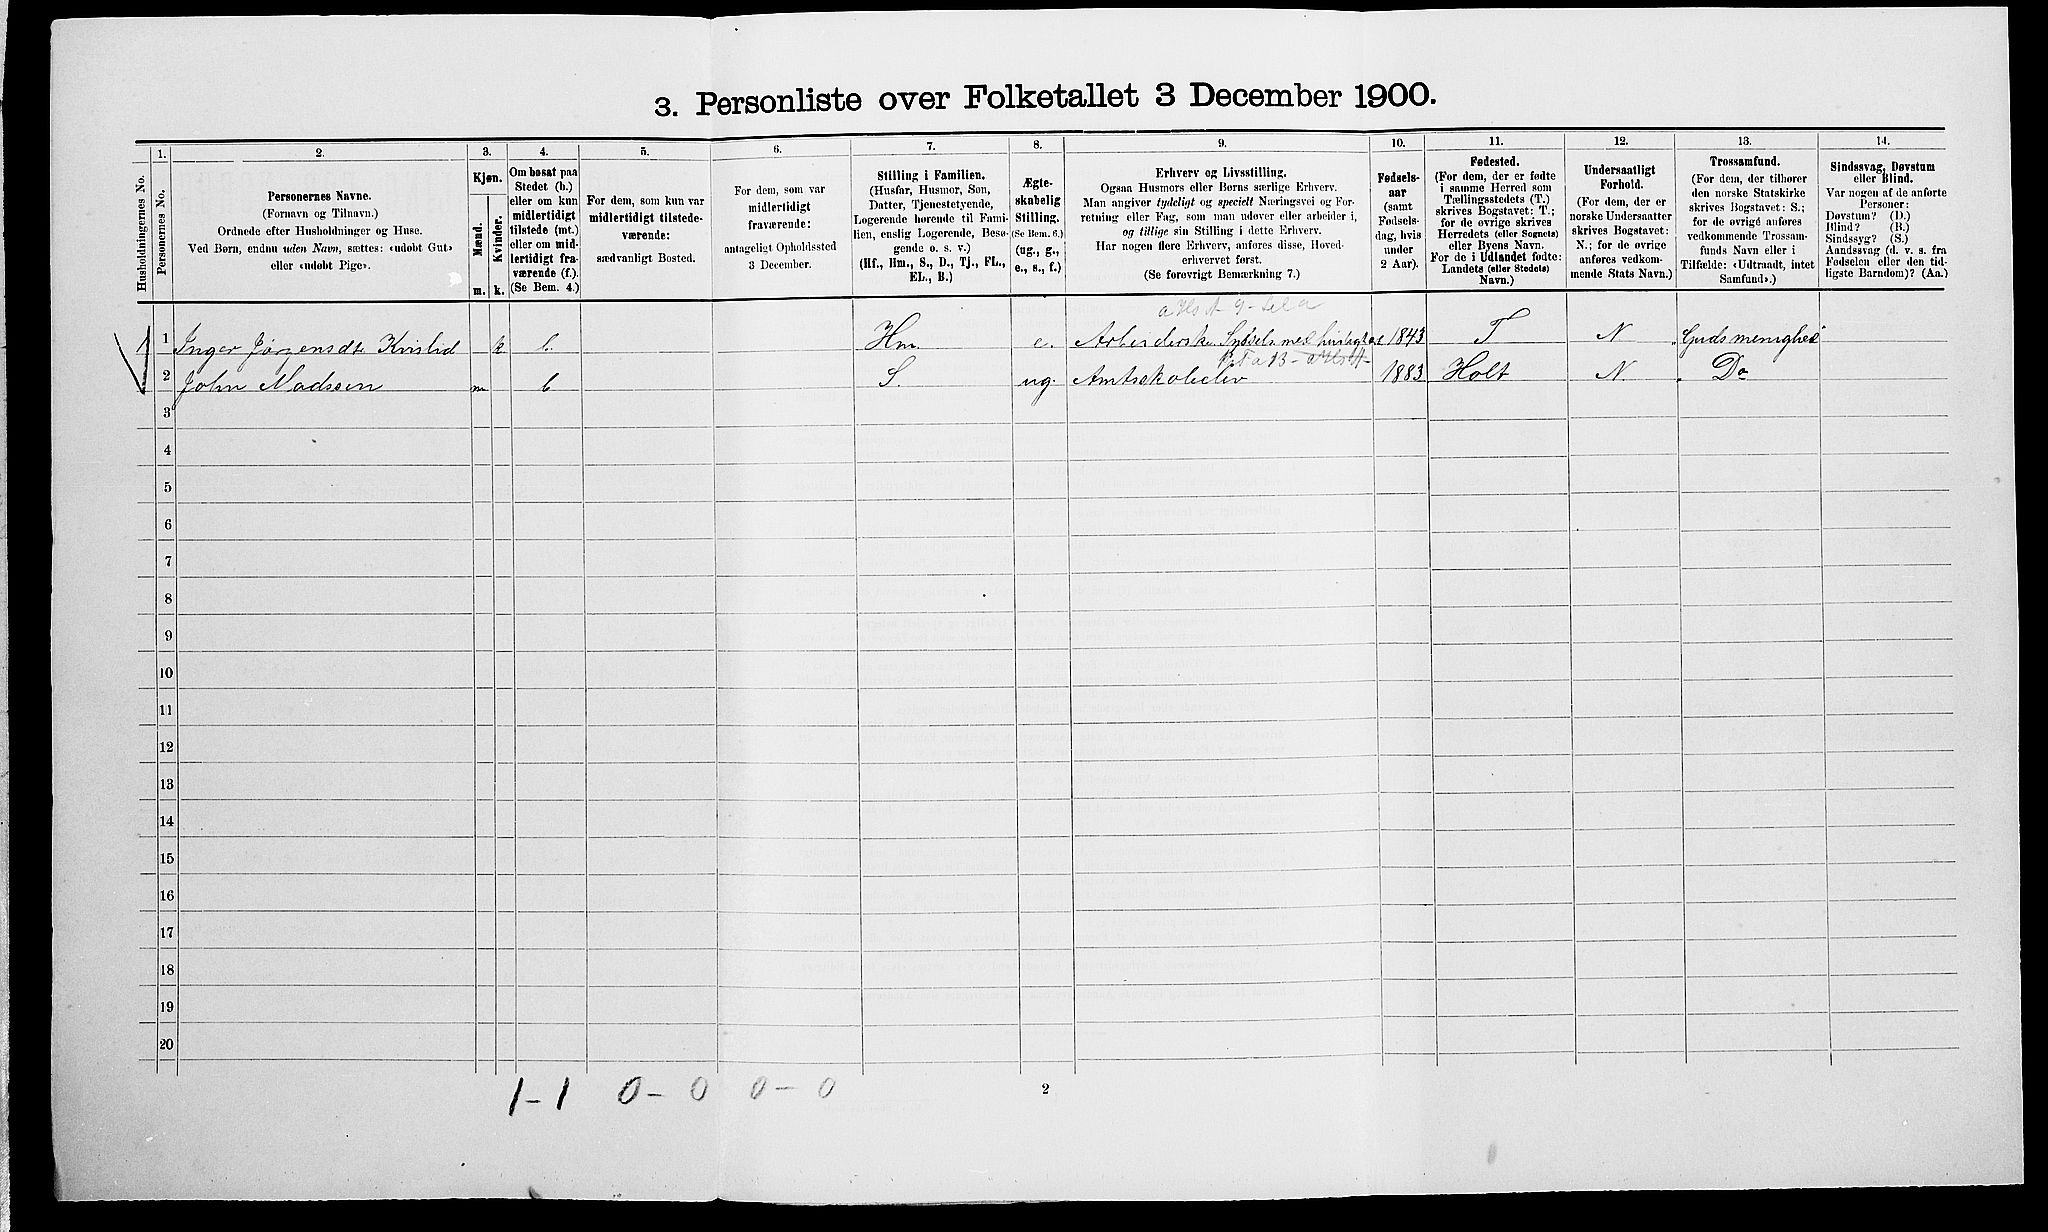 3. Personliste over Folketallet 3 December 1900.
1. 2. 3. 4. 5. 6. 7. 8. 9. 10. 11. 12. 13. 14.
Husholdningernes No.
Personernes No.
Personernes Navne.
(Fornavn og Tilnavn.)
Ordnede efter Husholdninger og Huse.
Ved Børn, endnu uden Navn, sættes: «udøbt Gut»
eller «udøbt Pige».
Kjøn.
Mænd.
Kvinder.
m. k.
Om bosat paa
Stedet (b.)
eller om kun
midlertidigt
tilstede (mt.)
eller om mid-
lertidigt fra-
værende (f.).
(Se Bem. 4.)
For dem, som kun var
midlertidigt tilstede-
værende:
sædvanligt Bosted.
For dem, som var
midlertidigt
fraværende:
antageligt Opholdssted
3 December.
Stilling i Familien.
(Husfar, Husmor, Søn,
Datter, Tjenestetyende,
Logerende hørende til Fami-
lien, enslig Logerende, Besø-
gende o. s. v.)
(Hf., Hm., S., D., Tj., FL.,
EL., B.)
Ægte-
skabelig
Stilling.
(Se Bem. 6.)
(ug., g.,
e., s., f.)
Erhverv og Livsstilling.
Ogsaa Husmors eller Børns særlige Erhverv.
Man angiver tydeligt og specielt Næringsvei og For-
retning eller Fag, som man udøver eller arbeider i,
og tillige sin Stilling i dette Erhverv.
Har nogen flere Erhverv, anføres disse, Hoved-
erhvervet først.
(Se forøvrigt Bemærkning 7.)
Fødsels-
aar
(samt
Fødsels-
dag, hvis
under
2 Aar).
Fødested.
(For dem, der er fødte
i samme Herred som
Tællingsstedets (T.)
skrives Bogstavet: T.;
for de øvrige skrives
Herredets (eller Sognets)
eller Byens Navn.
For de i Udlandet fødte:
Landets (eller Stedets)
Navn.)
Undersaatligt
Forhold.
(For dem, der er
norske Undersaatter
skrives Bogstavet:
N.; for de øvrige
anføres vedkom-
mende Stats Navn.)
Trossamfund.
(For dem, der tilhører
den norske Statskirke
skrives Bogstavet: S.;
for de øvrige anføres
vedkommende Trossam-
funds Navn eller i
Tilfælde: «Udtraadt, intet
Samfund».)
Sindssvag, Døvstum
eller Blind.
Var nogen af de anførte
Personer:
Døvstum? (D.)
Blind? (B.)
Sindssyg? (S.)
Aandssvag (d. v. s. fra
Fødselen eller den tid-
ligste Barndom)? (Aa.)
1 1 Inger Jørgensdt. Kvislid k b. Hm. e. Arbeiderske 1843 T N Gudsmenighed
2 John Madssen m b S. ug. Amtsskoleelev 1883 Holt N. Do
3
4
5
6
7
8
9
10
11
12
13
14
15
16
17
18
19
20
1 - 1 0 - 0 0 - 0
2